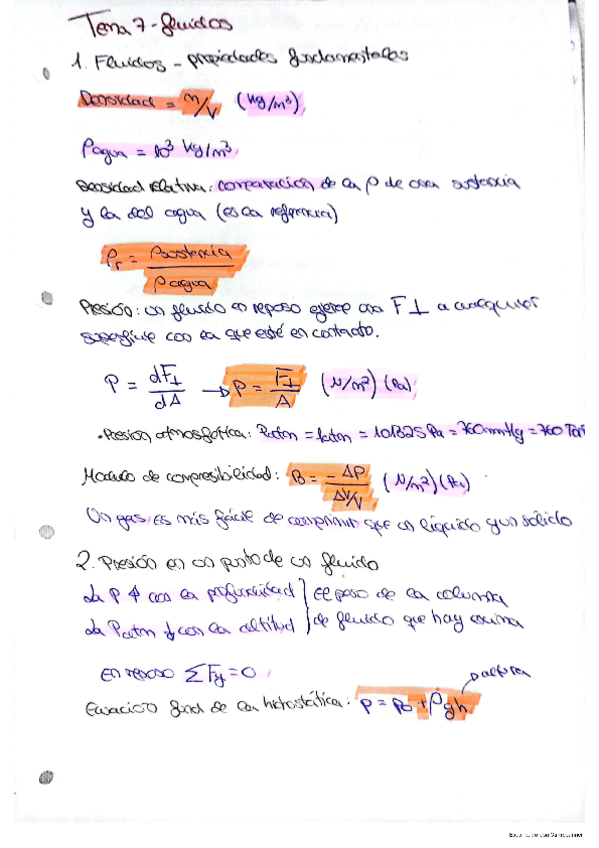 Tema 7 - fluidos
1. Fluidos - propiedades fundamentales
Densidad = m/V (kg/m³)
ρagua = 10³ kg/m³
Densidad relativa: comparación de la ρ de una sustancia
y la del agua (es la referencia)
ρr = ρsustancia / ρagua
Presión: un fluido en reposo ejerce una F⊥ a cualquier
superficie con la que esté en contacto.
P = dF⊥/dA → P = F⊥/A (N/m²) (Pa)
· Presion atmosférica: Patm = 1atm = 101325 Pa = 760mmHg = 760 Torr
Modulo de compresibilidad: B = -ΔP / ΔV/V (N/m²) (Pa)
Un gas es más fácil de comprimir que un líquido y un sólido
2. Presión en un punto de un fluido
La P ↑ con la profundidad } El peso de la columna
La Patm ↓ con la altitud } de fluido que hay encima
En reposo ΣFy = 0
→ altura
Ecuación fund de la hidrostática: P = P0 + ρgh